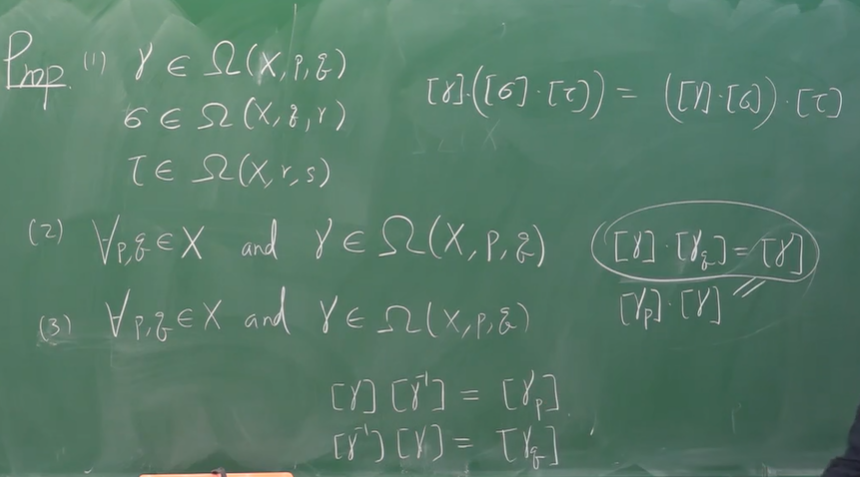 Prop. (1) γ ∈ Ω(X, p, q)
[γ]·([σ]·[τ]) = ([γ]·[σ])·[τ]
σ ∈ Ω(X, q, r)
τ ∈ Ω(X, r, s)
(2) ∀p, q ∈ X and γ ∈ Ω(X, p, q)
[γ]·[γ_q] = [γ]
[γ_p]·[γ]
(3) ∀p, q ∈ X and γ ∈ Ω(X, p, q)
[γ][γ⁻¹] = [γ_p]
[γ⁻¹][γ] = [γ_q]